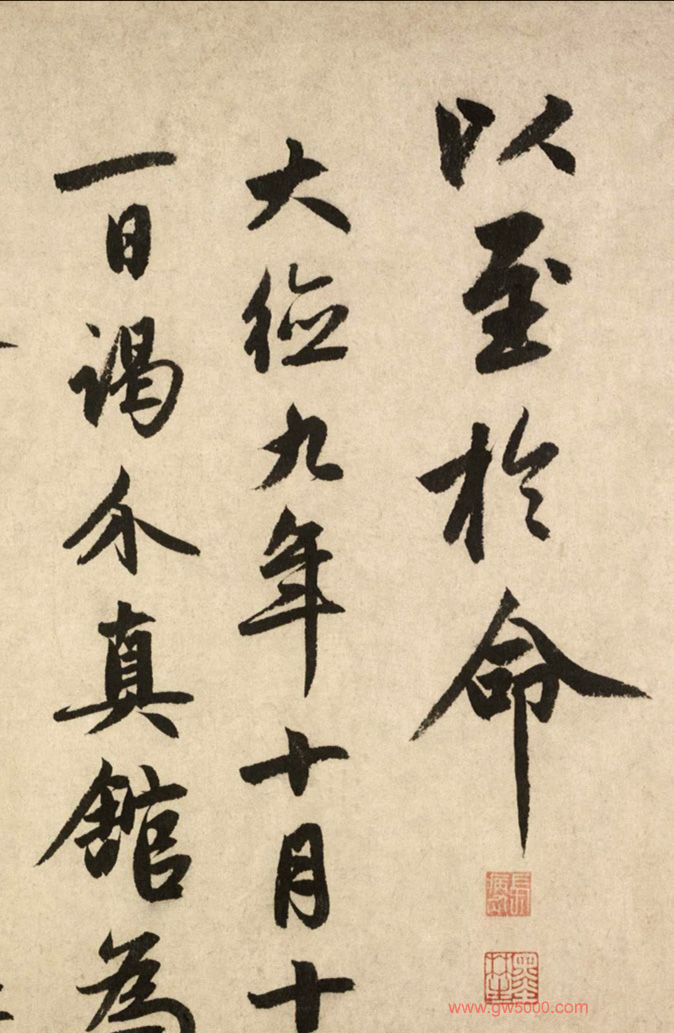 以至於命
大德九年十月十
一日謁介真舘為
www.gw5000.com